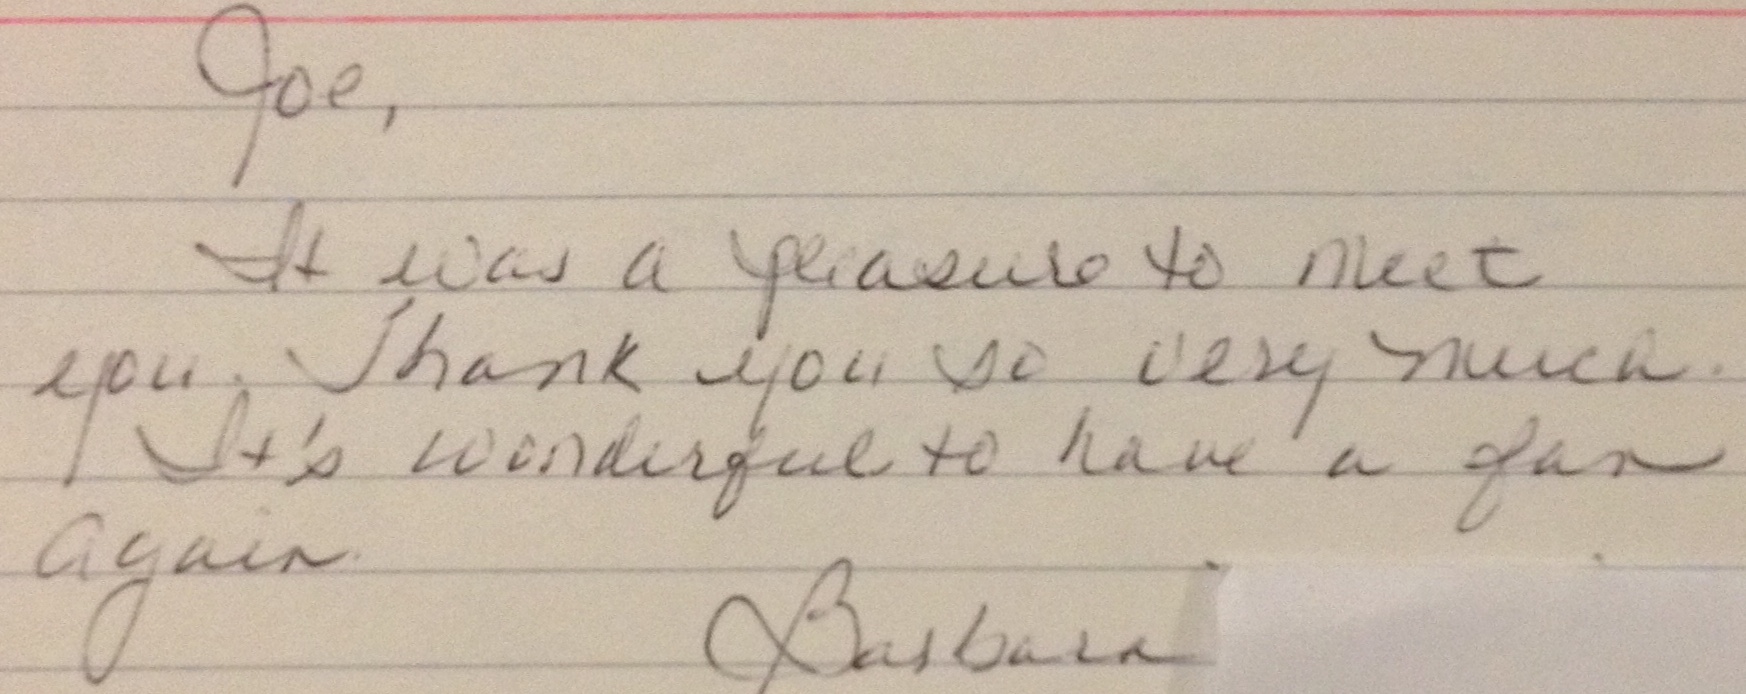 Joe,
It was a pleasure to meet
you. Thank you so very much.
It's wonderful to have a fan
again.
Barbara